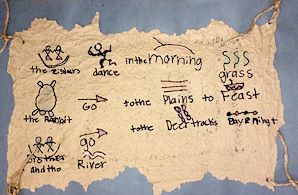 the sisters dance in the morning grass
the Rabbit Go to the Plains to Feast
brother and the go River to the Deer tracks Bay